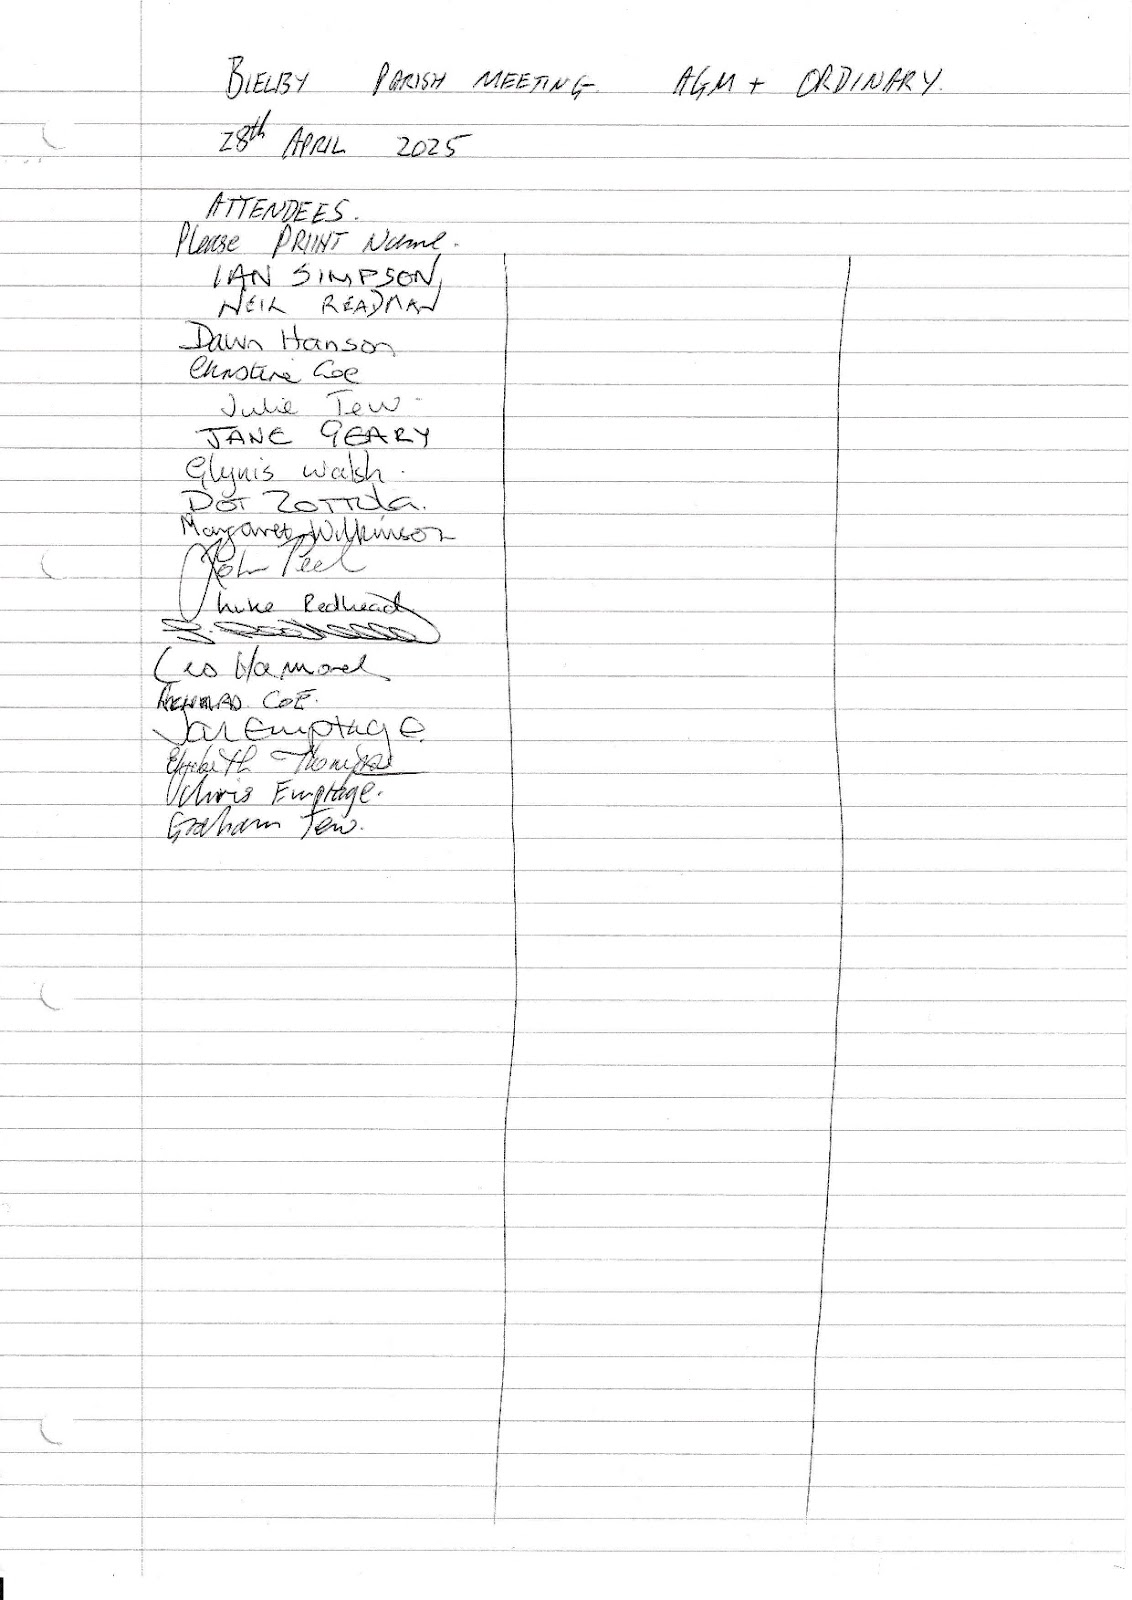 BIELBY PARISH MEETING. AGM + ORDINARY.
28th APRIL 2025
ATTENDEES.
Please PRINT Name.
IAN SIMPSON
NEIL READMAN
Dawn Hanson
Christine Coe
Julie Tew
JANE GEARY
Glynis Walsh.
DOT ZOTTOLA.
Margaret Wilkinson
John Peel
Luke Redhead
Leo Hammond
COE.
Jan Emptage.
Elizabeth Thompson
Chris Emptage.
Graham Tew.